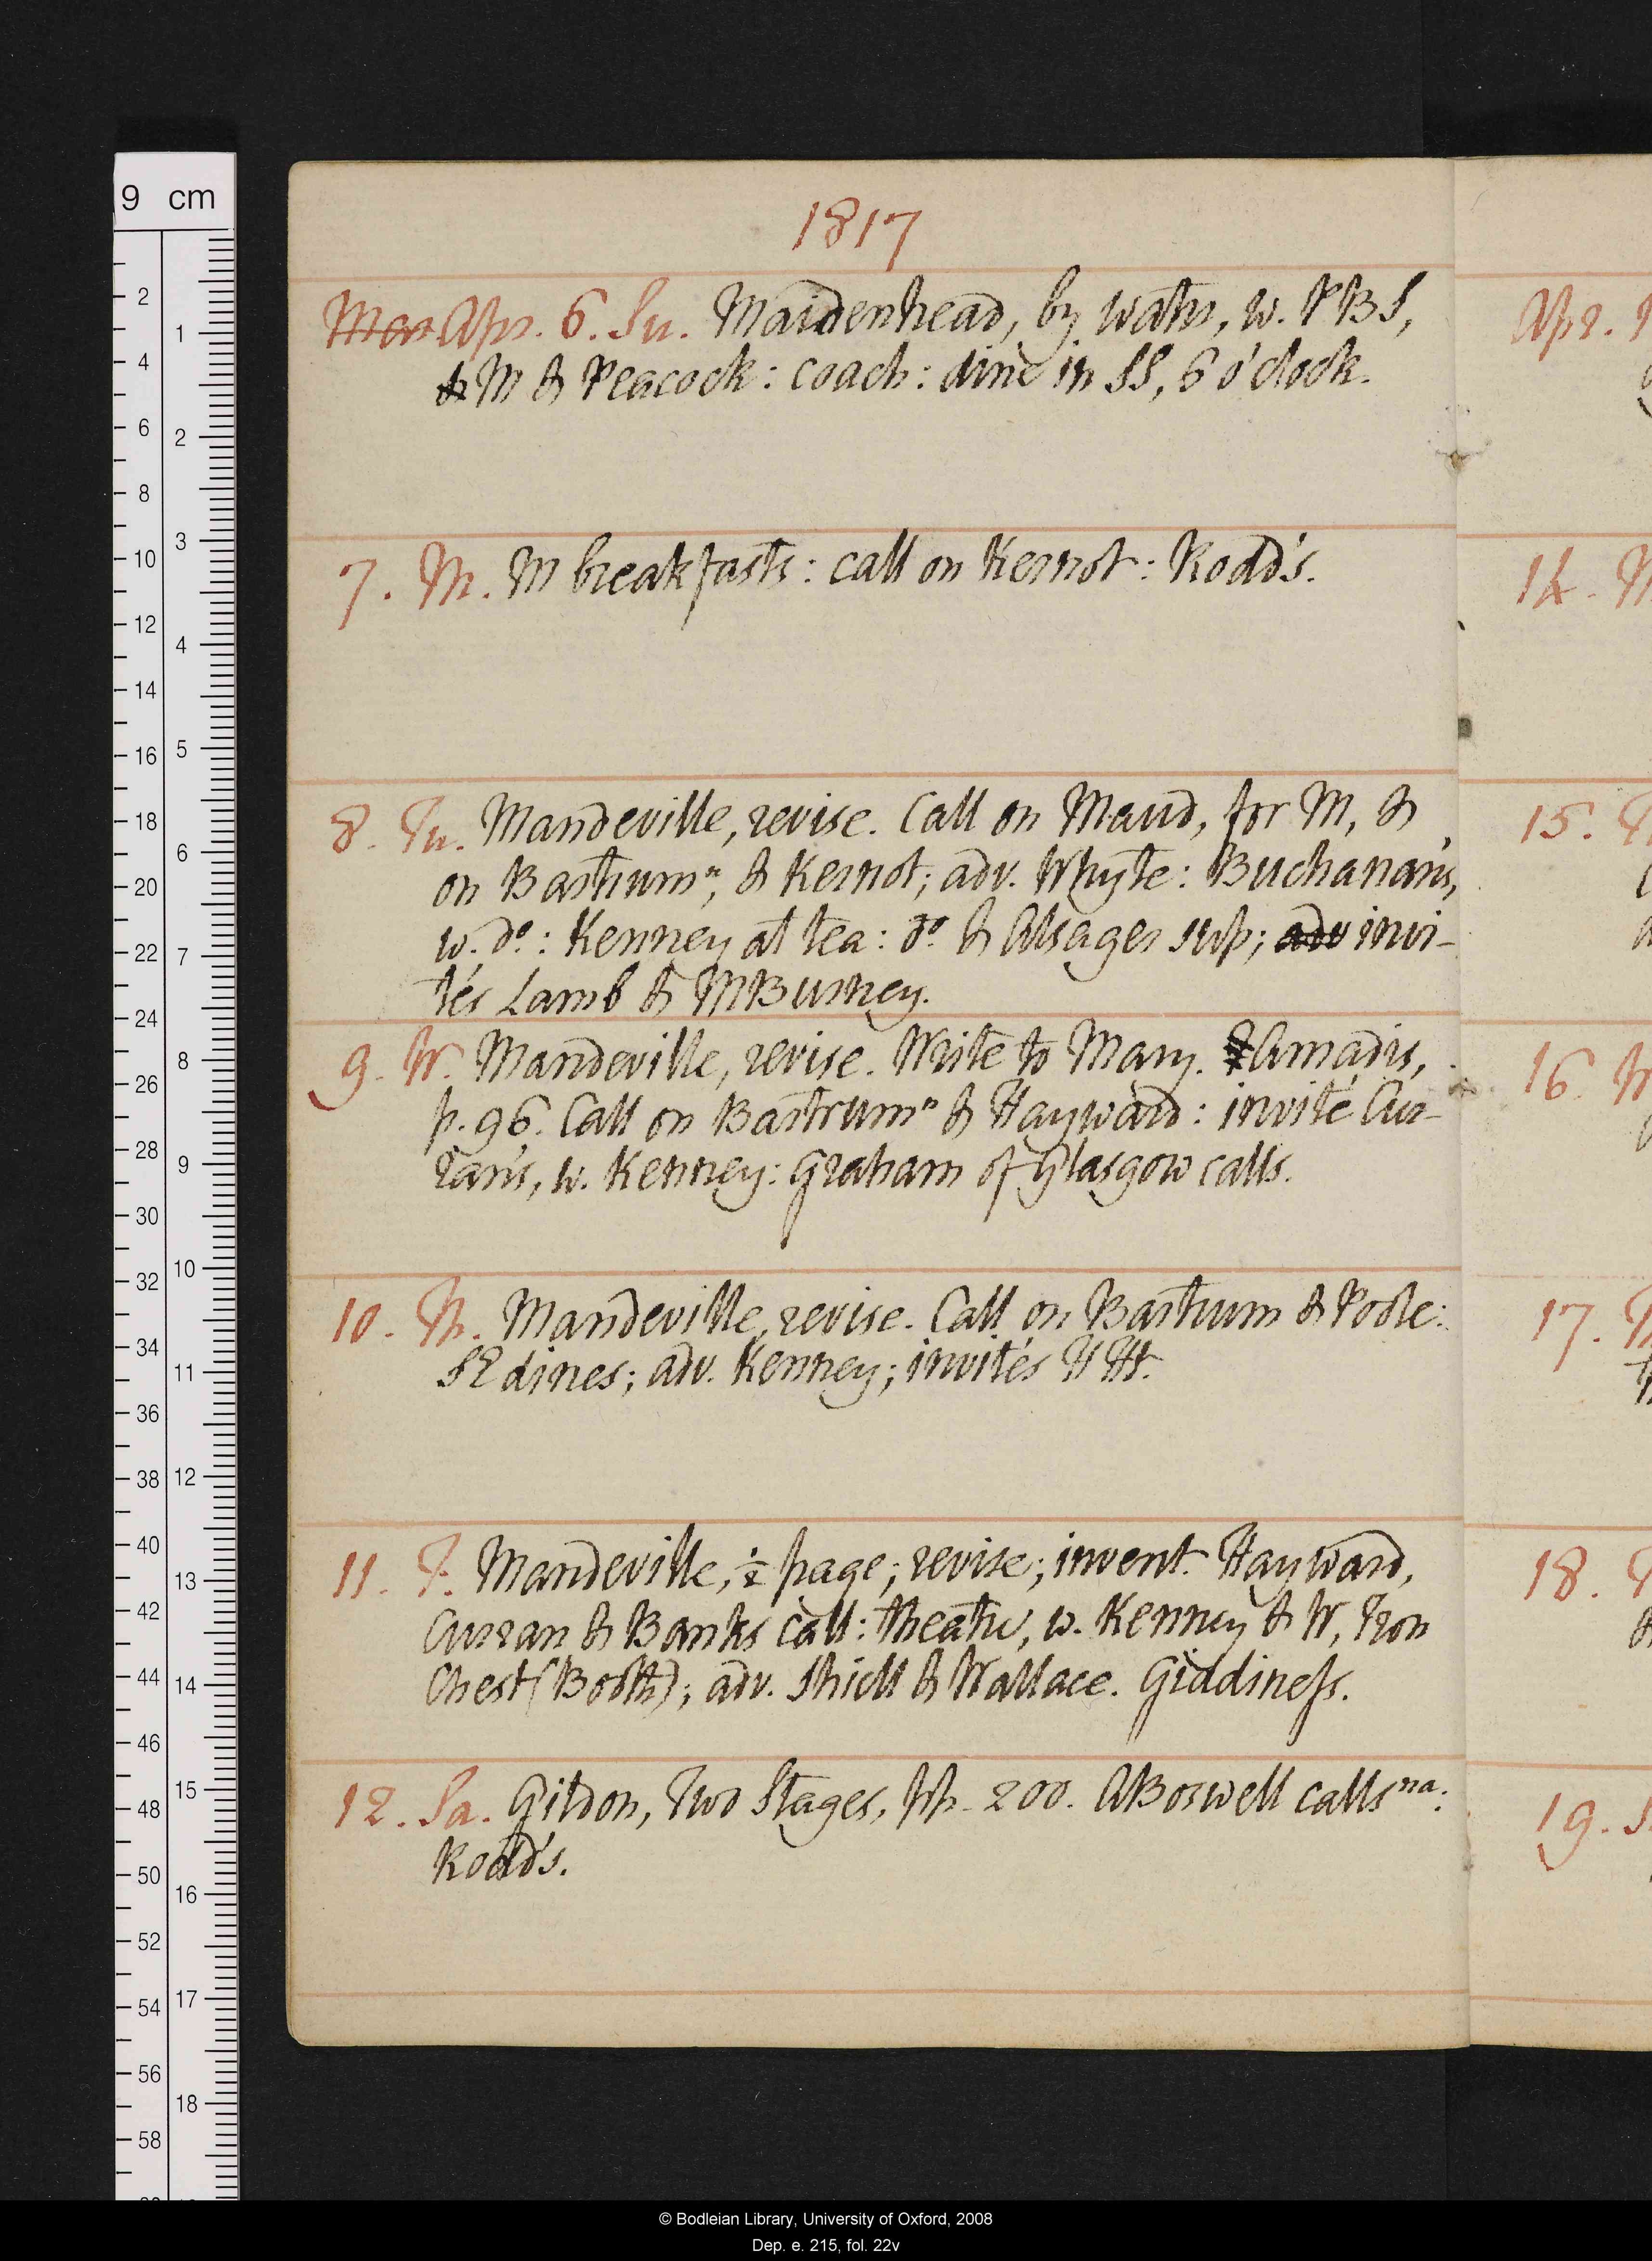 1817
Mar Apr. 6. Su. Maidenhead, by water, w. PBS,
& M & Peacock: coach: dine in SS, 6 o'clock.
7. M. M breakfasts: call on Kernot: Rodd's.
8. Tu. Mandeville, revise. Call on Maud, for M, &
on Bastrumn, & Kernot; adv. Whyte: Buchanan's,
w. do: Kenney at tea: do & Alsager sup; adv invi-
tés Lamb & MBurney.
9. W. Mandeville, revise. Write to Mary. Amadis,
p. 96. Call on Bastrumn & Hayward: invité Cur-
ran's, w. Kenney: Graham of Glasgow calls.
10. Th. Mandeville, revise. Call on Bastrum & Poole:
SE dines; adv. Kenney; invités HHt.
11. F. Mandeville, ½ page; revise; invent. Hayward,
Curran & Banks call: theatre, w. Kenney & W, Iron
Chest (Booth); adv. Shiell & Wallace. Giddineſs.
12. Sa. Gildon, Two Stages, pp. 200. ABoswell calls na:
Rodd's.
Apr. 1
14. M
15. T
16. W
17. T
18. F
19. S
9 cm
2
4
6
8
10
12
14
16
18
20
22
24
26
28
30
32
34
36
38
40
42
44
46
48
50
52
54
56
58
1
2
3
4
5
6
7
8
9
10
11
12
13
14
15
16
17
18
© Bodleian Library, University of Oxford, 2008
Dep. e. 215, fol. 22v